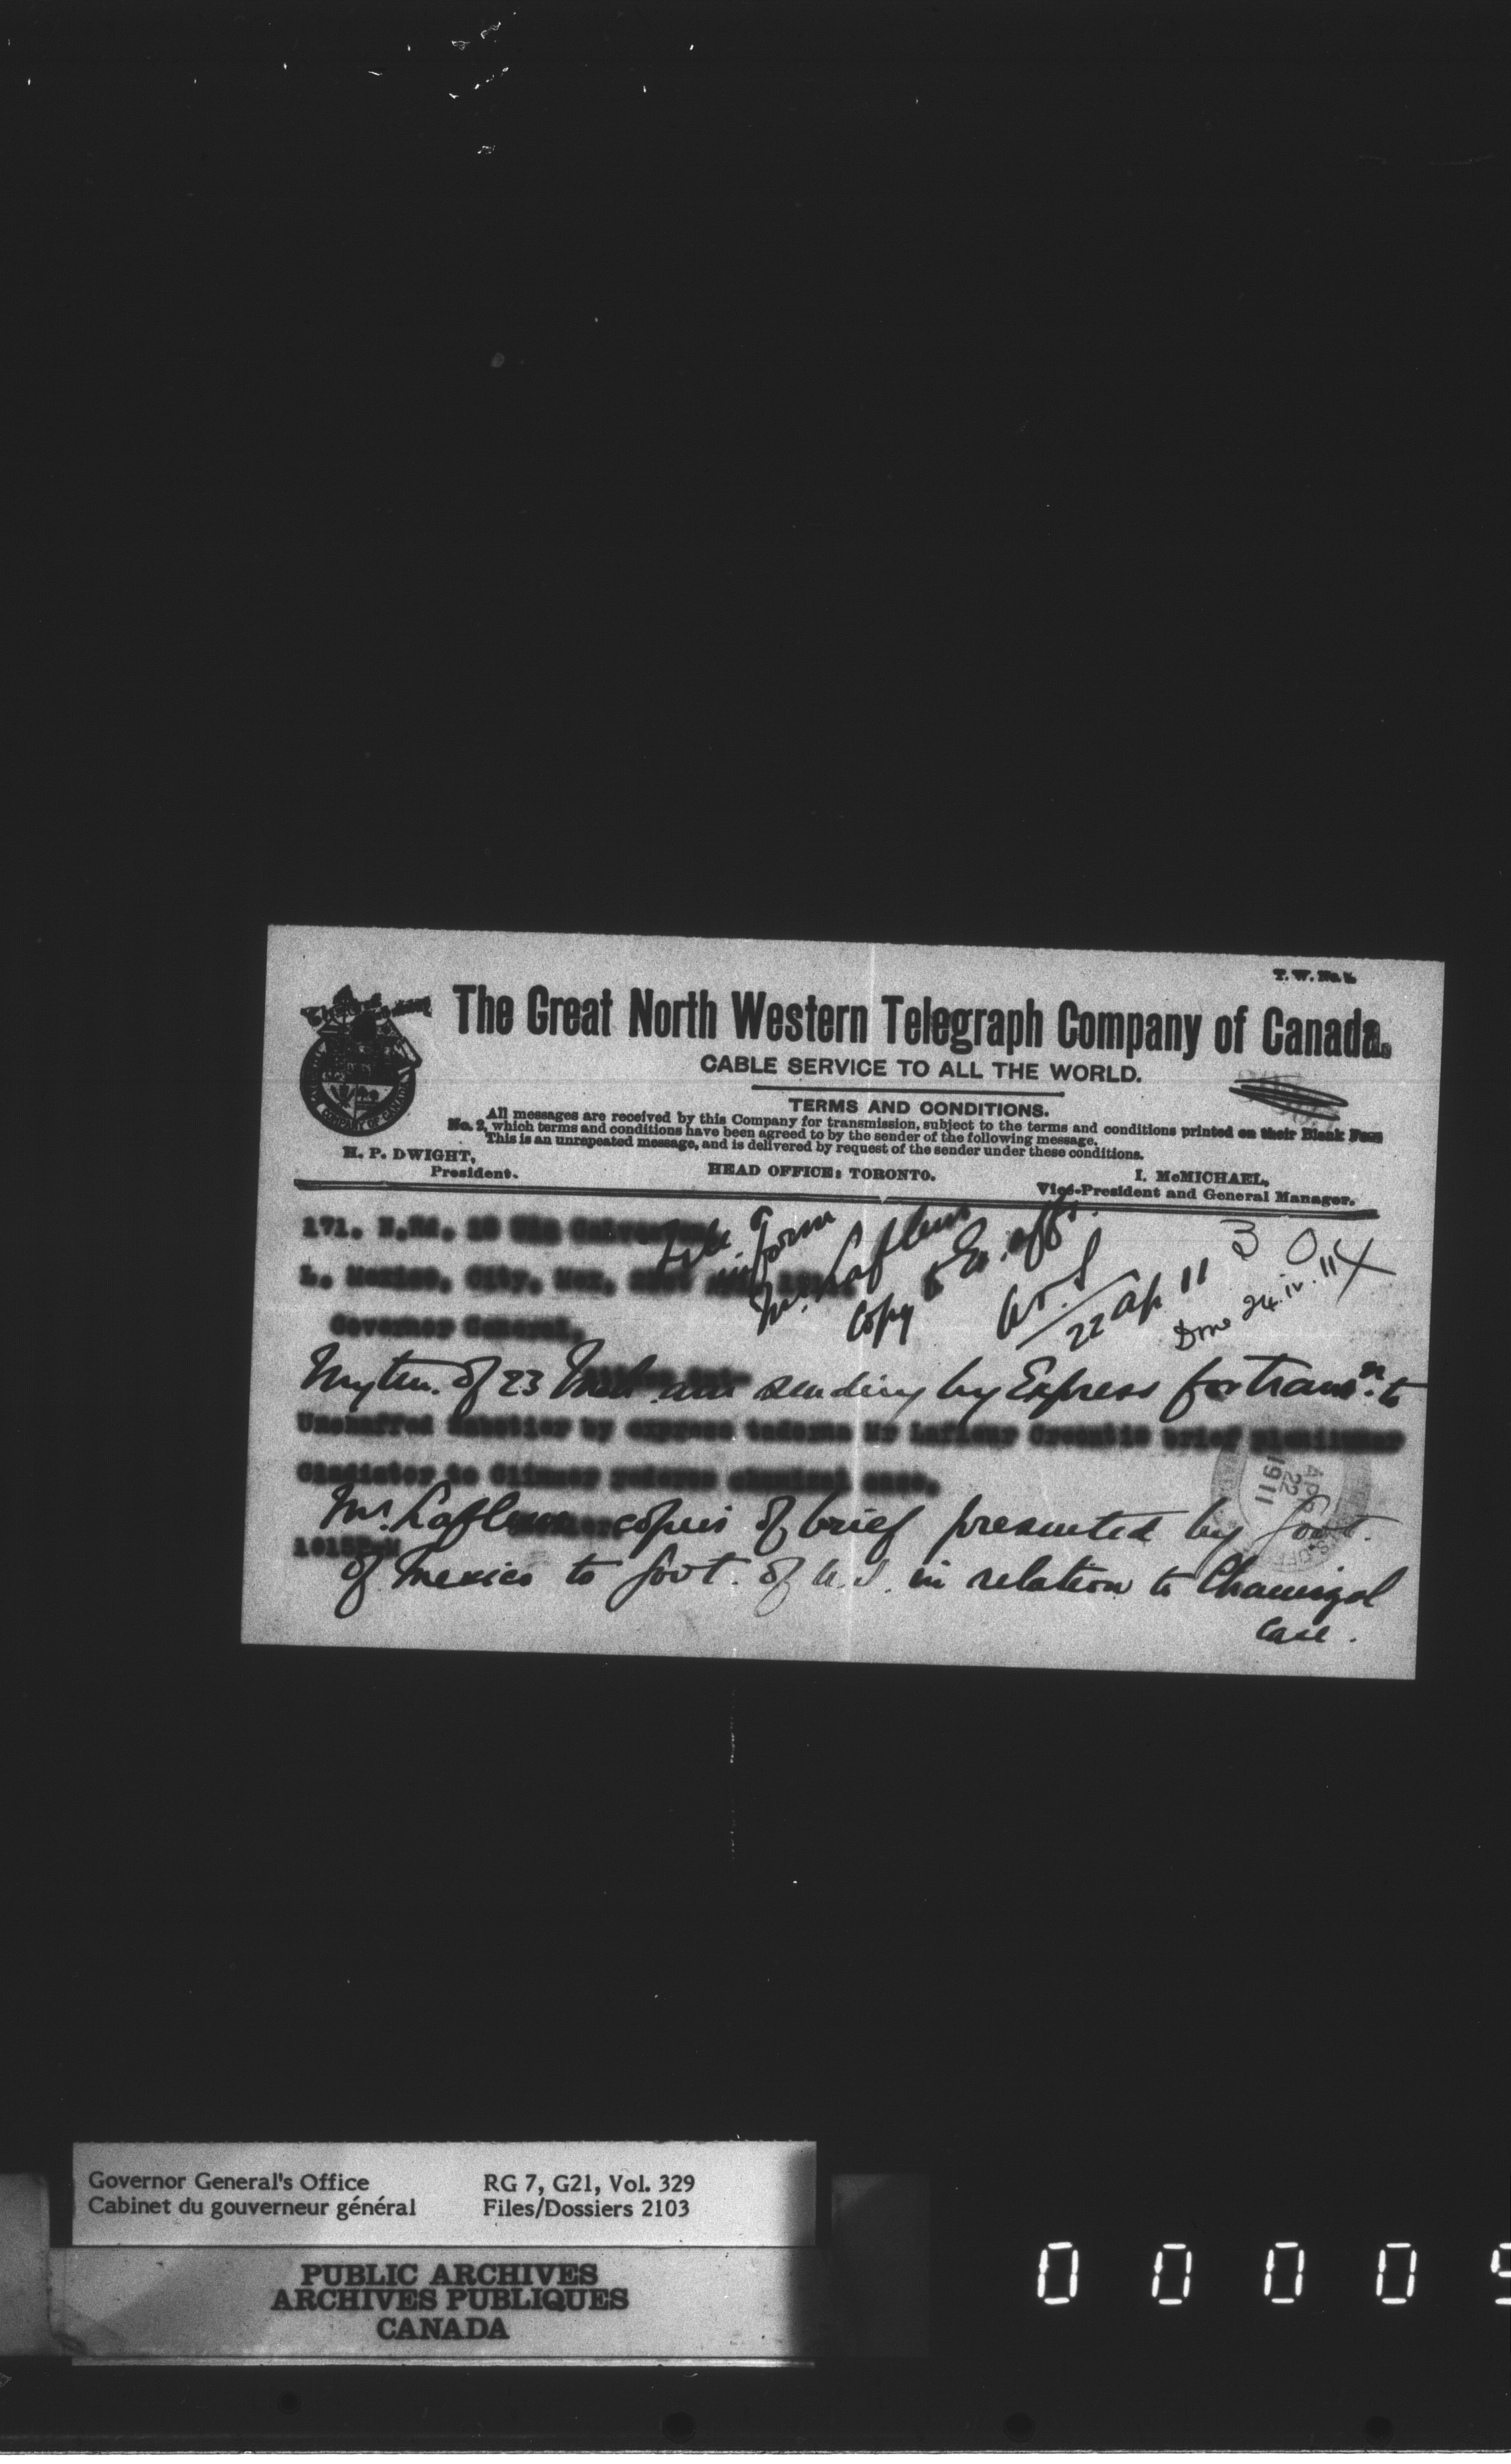 T. W. No. 1.
The Great North Western Telegraph Company of Canada.
CABLE SERVICE TO ALL THE WORLD.
TERMS AND CONDITIONS.
All messages are received by this Company for transmission, subject to the terms and conditions printed on their Blank Form
No. 2, which terms and conditions have been agreed to by the sender of the following message.
This is an unrepeated message, and is delivered by request of the sender under these conditions.
H. P. DWIGHT,
President.
HEAD OFFICE: TORONTO.
I. McMICHAEL,
Vice-President and General Manager.
171.
inform
Mr. Lafleur
Copy to Ex. aff.
22 Ap 11
3 0
Done 24.iv.11
L. Mexico, City, Mex,
Governor General,
My tem. of 23 Mch am sending by Express for transn. to
by express Mr Lafleur brief
Gladiator to case.
APR 22 1911
Mr. Lafleur copies of brief presented by Govt.
of Mexico to Govt. of U.S. in relation to Chamizal
Case.
Governor General's Office
Cabinet du gouverneur général
RG 7, G21, Vol. 329
Files/Dossiers 2103
PUBLIC ARCHIVES
ARCHIVES PUBLIQUES
CANADA
0 0 0 0